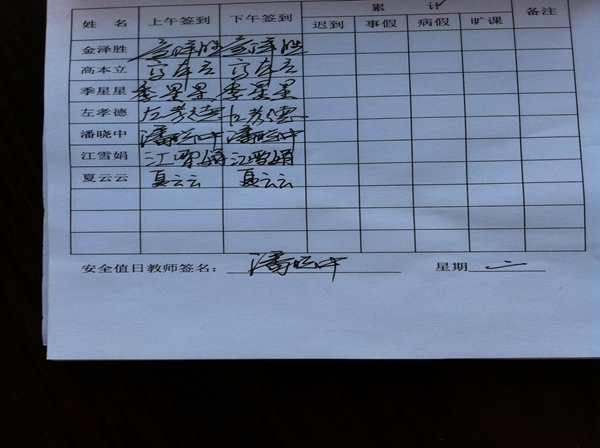 累 计
姓 名 上午签到 下午签到 迟到 事假 病假 旷课 备注
金泽胜 金泽胜 金泽胜
高本立 高本立 高本立
季星星 季星星 季星星
左孝德 左孝德 左孝德
潘晓中 潘晓中 潘晓中
江雪娟 江雪娟 江雪娟
夏云云 夏云云 夏云云
安全值日教师签名: 潘晓中 星期 二